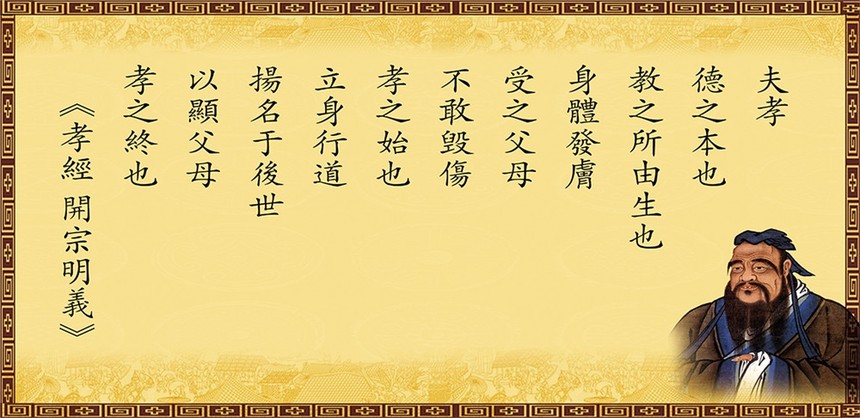 夫孝
德之本也
教之所由生也
身體發膚
受之父母
不敢毀傷
孝之始也
立身行道
揚名于後世
以顯父母
孝之終也
《孝經 開宗明義》